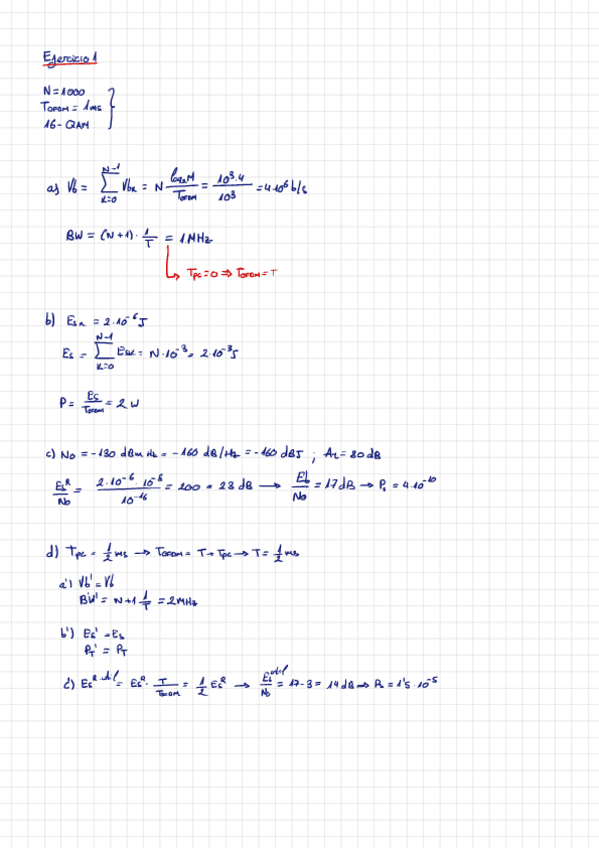 Ejercicio 1
N = 1000
T_OFDM = 1 ms
16-QAM
a) Vb = Σ_{k=0}^{N-1} Vbk = N log₂M / T_OFDM = 10³·4 / 10³ = 4·10⁶ b/s
BW = (N+1)· 1/T = 1 MHz
Tpc = 0 ⇒ T_OFDM = T
b) Esk = 2·10⁻⁶ J
Es = Σ_{k=0}^{N-1} Esk = N·10⁻³ = 2·10⁻³ J
P = Es / T_OFDM = 2 W
c) No = -130 dBm Hz = -160 dB/Hz = -160 dBJ ; AL = 80 dB
Es^R / No = 2·10⁻⁶ · 10⁻⁸ / 10⁻¹⁶ = 200 = 23 dB → Eb / No = 17 dB → P = 4·10⁻¹⁰
d) Tpc = 1/2 ms → T_OFDM = T + Tpc → T = 1/2 ms
a') Vb' = Vb
BW' = N+1 1/T = 2 MHz
b') Es' = Es
P_T' = P_T
c') Es^R = Es^R · T / T_OFDM = 1/2 Es^R → Es / No = 17-3 = 14 dB → P = 1'5·10⁻⁵